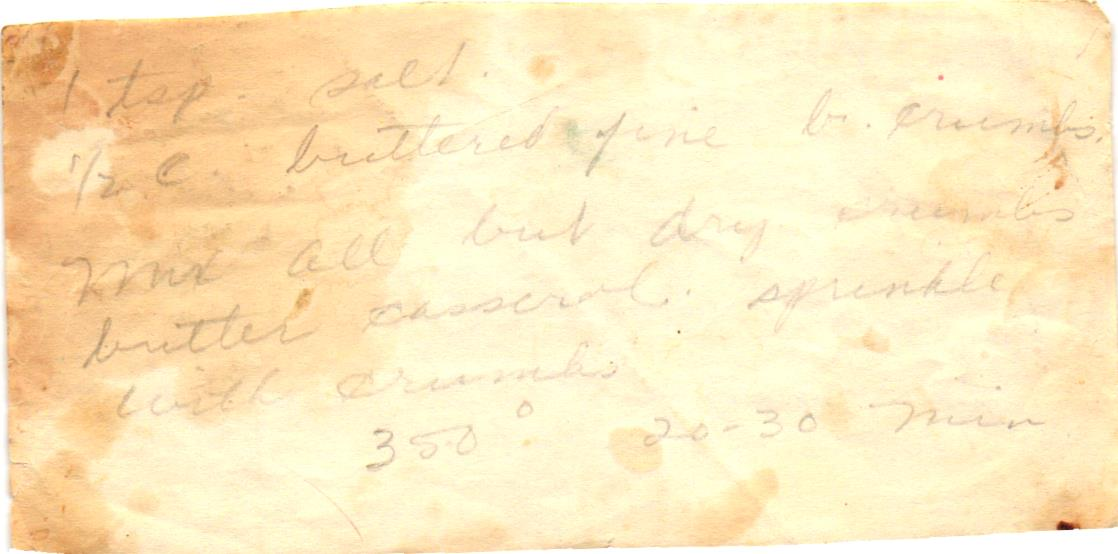 1 tsp. salt.
1/2 C. buttered fine b. crumbs.
Mix all but dry crumbs
butter casserol. sprinkle
with crumbs
350° 20-30 Min